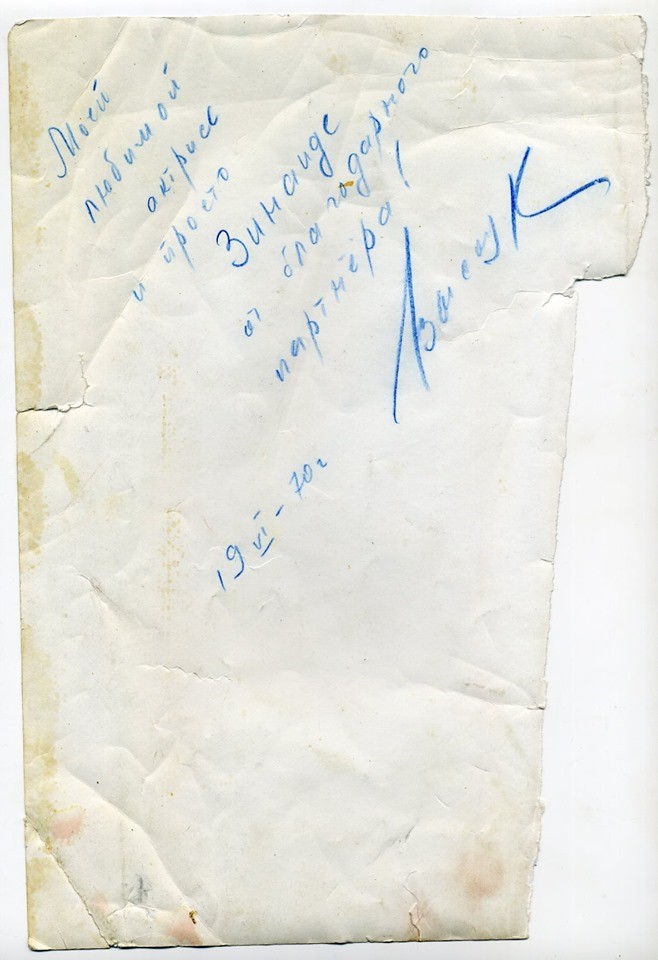 Моей
любимой
актрисе
и просто
Зинаиде
от благодарного
партнёра!
19 VI – 70 г